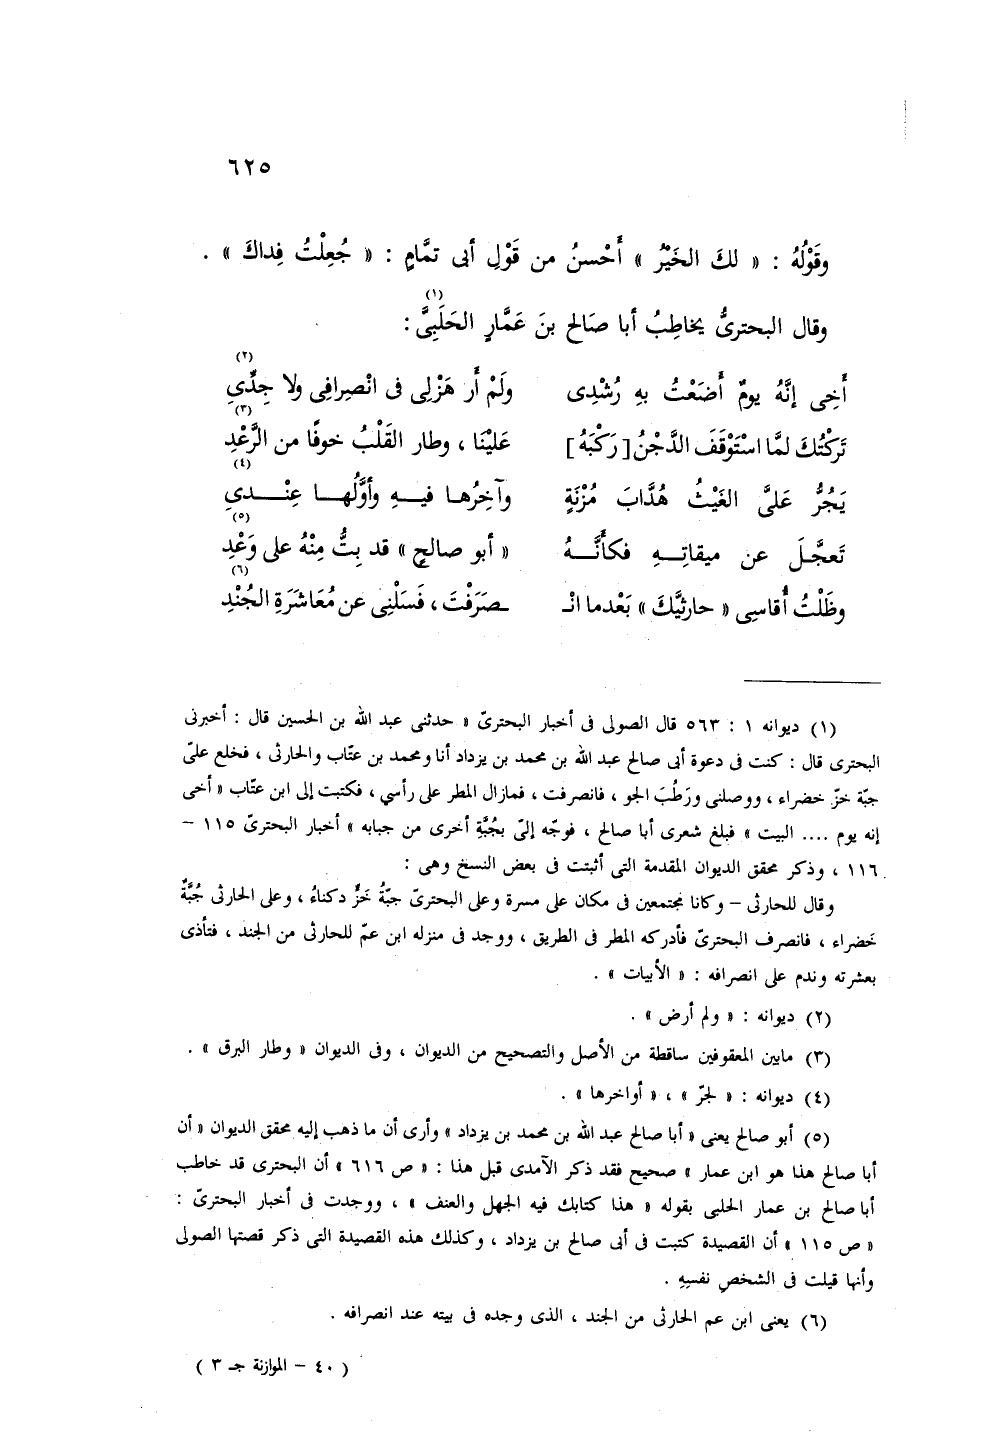 ٦٢٥
وقَوْلُهُ : « لكَ الخَيْرُ » أَحْسنُ من قَوْلِ أبى تمَّامٍ : « جُعِلْتُ فِداكَ » .
وقال البحترىُّ يخاطِبُ أبا صَالحِ بنَ عَمَّارٍ الحَلَبِىَّ (١) :
أَخِى إنَّهُ يومٌ أضَعْتُ بهِ رُشْدِى ولَمْ أَر هَزْلِى فى انْصِرافِى ولا جِدِّي (٢)
تَرَكْتُكَ لمَّا اسْتَوْقَفَ الدَّجْنُ [ رَكْبَهُ ] عَليْنَا ، وطار القَلْبُ خوفًا من الرَّعْدِ (٣)
يَجُرُّ عَلىَّ الغَيْثُ هُدَّابَ مُزْنَةٍ وآخِرُهـا فيـهِ وأوَّلُهـا عِنْـدي (٤)
تَعجَّلَ عن ميقاتِـهِ فكأَنَّـهُ « أبو صالحٍ » قد بِتُّ مِنْهُ على وَعْدِ (٥)
وظَلْتُ أُقاسِى « حارثيَّكَ » بَعْدما انْـ ـصَرَفْتَ ، فَسَلْنِى عن مُعَاشَرَةِ الجُنْدِ (٦)
(١) ديوانه ١ : ٥٦٣ قال الصولى فى أخبار البحترىّ « حدثنى عبد الله بن الحسين قال : أخبرنى
البحترى قال : كنت فى دعوة أبى صالح عبد الله بن محمد بن يزداد أنا ومحمد بن عتّاب والحارثى ، فخلع علىّ
جبّة خزّ خضراء ، ووصلنى ورَطُبَ الجو ، فانصرفت ، فمازال المطر على رأسي ، فكتبت إلى ابن عتّاب « أخى
إنه يوم .... البيت » فبلغ شعرى أبا صالح ، فوجّه إلىّ بجُبَّةٍ أخرى من جبابه » أخبار البحترىّ ١١٥ –
١١٦ ، وذكر محقق الديوان المقدمة التى أثبتت فى بعض النسخ وهى :
وقال للحارثى – وكانا مجتمعين فى مكان على مسرة وعلى البحترىّ جبّةُ خَزٍّ دكناءُ ، وعلى الحارثى جُبَّةٌ
خَضراء ، فانصرف البحترىّ فأدركه المطر فى الطريق ، ووجد فى منزله ابن عمّ للحارثى من الجند ، فتأذى
بعشرته وندم على انصرافه : « الأبيات » .
(٢) ديوانه : « ولم أرض » .
(٣) مابين المعقوفين ساقطة من الأصل والتصحيح من الديوان ، وفى الديوان « وطار البرق » .
(٤) ديوانه : « لجرّ » ، « أواخرها » .
(٥) أبو صالح يعنى « أبا صالح عبد الله بن محمد بن يزداد » وأرى أن ما ذهب إليه محقق الديوان « أن
أبا صالح هذا هو ابن عمار » صحيح فقد ذكر الآمدى قبل هذا : « ص ٦١٦ » أن البحترى قد خاطب
أبا صالح بن عمار الحلبى بقوله « هذا كتابك فيه الجهل والعنف » ، ووجدت فى أخبار البحترىّ :
« ص ١١٥ » أن القصيدة كتبت فى أبى صالح بن يزداد ، وكذلك هذه القصيدة التى ذكر قصتها الصولى
وأنها قيلت فى الشخصِ نفسِهِ .
(٦) يعنى ابن عم الحارثى من الجند ، الذى وجده فى بيته عند انصرافه .
( ٤٠ – الموازنة جـ ٣ )